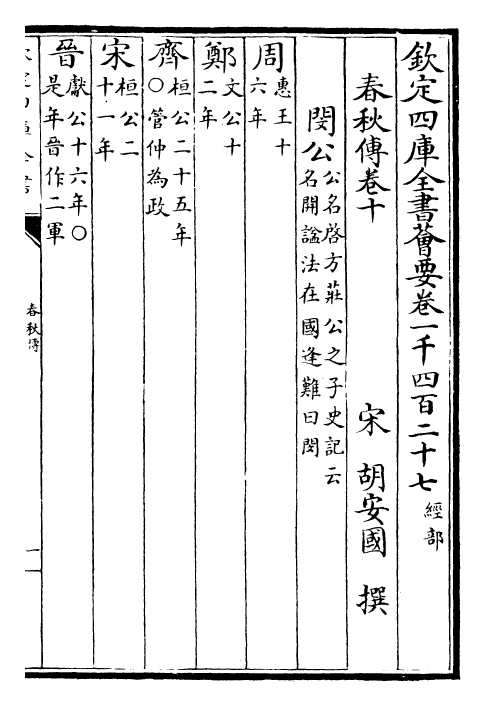 欽定四庫全書薈要卷一千四百二十七 經部
春秋傳卷十 宋 胡安國 撰
閔公 公名啓方莊公之子史記云
名開諡法在國逢難曰閔
周 惠王十
六年
鄭 文公十
二年
齊 桓公二十五年
○管仲為政
宋 桓公二
十一年
晉 獻公十六年○
是年晉作二軍
春秋傳
一